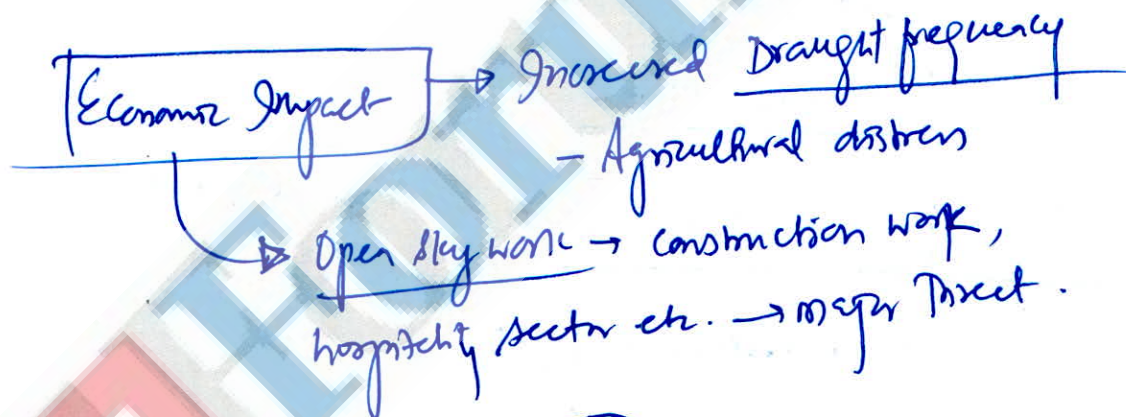 Economic Impact → Increased Draught frequency
- Agricultural distress
→ Open sky work → construction work,
hospitality sector etc. → major Threat.